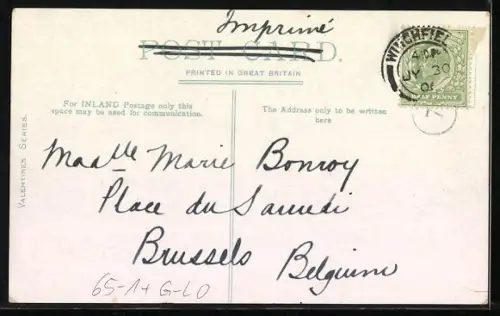 Imprimé
POST CARD.
PRINTED IN GREAT BRITAIN
For INLAND Postage only this
space may be used for communication.
The Address only to be written
here
VALENTINES SERIES.
WINCHFIEL
JY 30
HALF PENNY
Madlle Marie Bonroy
Place du Samedi
Brussels
Belgium
65-1+ G-LO